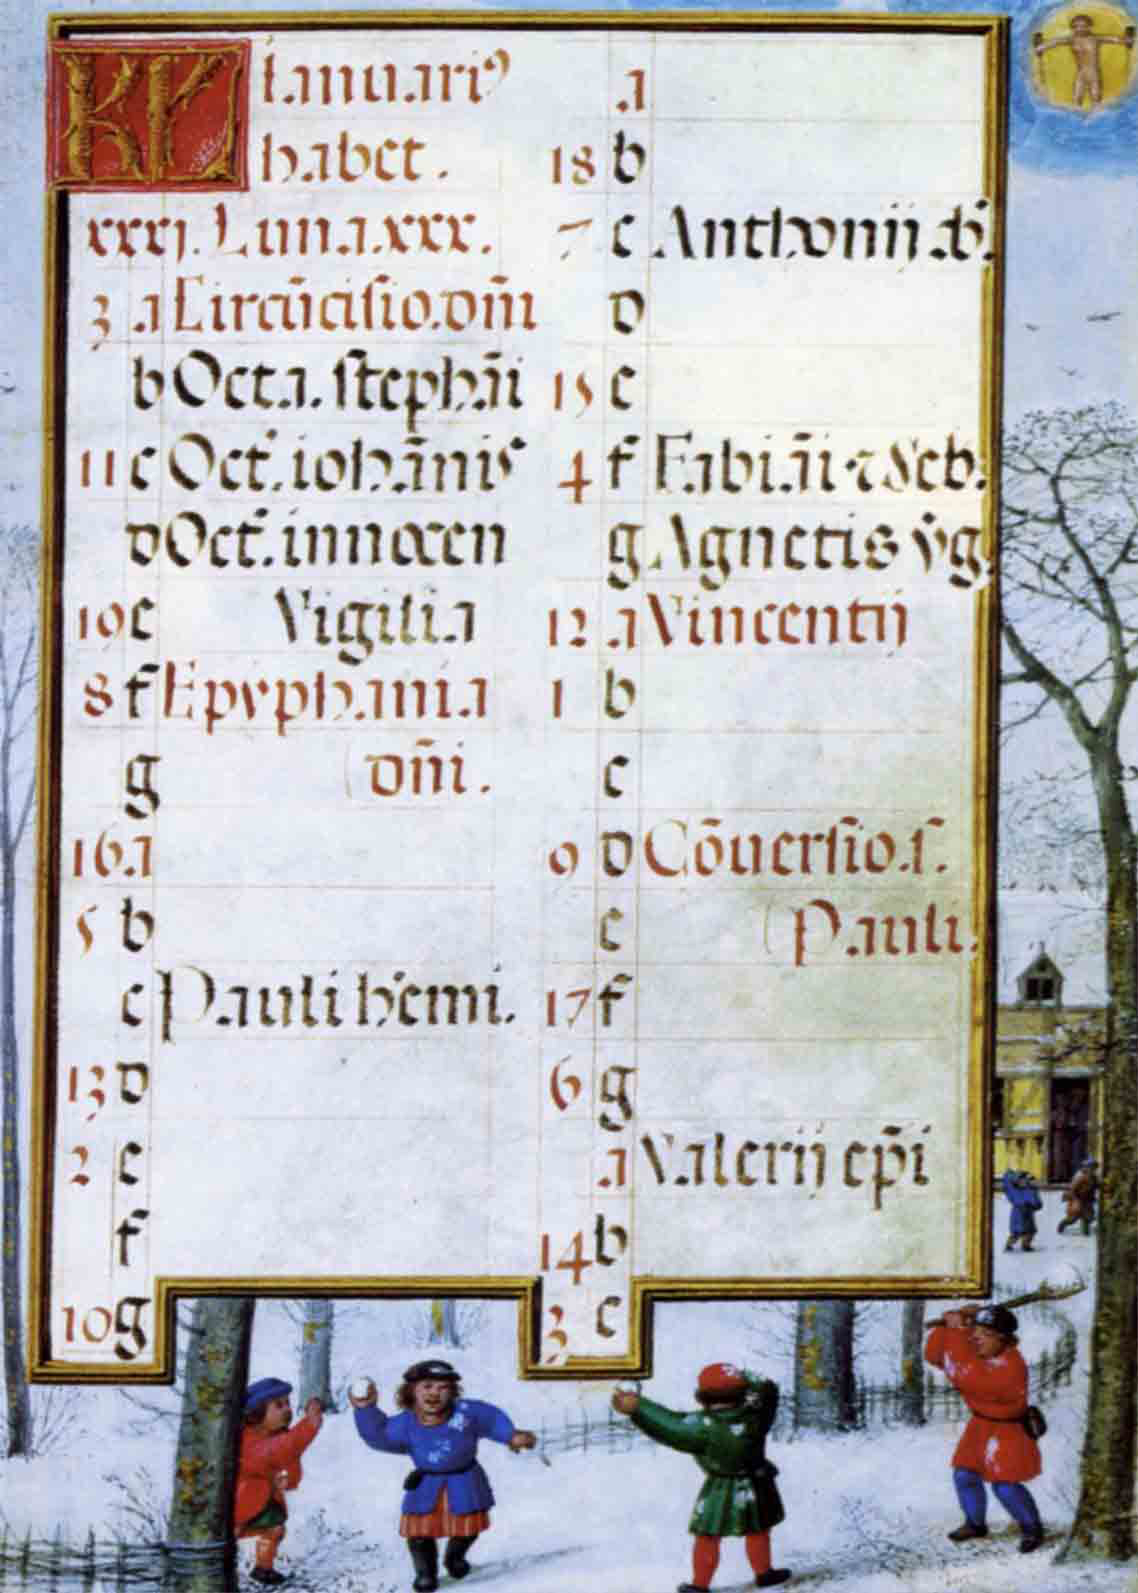 KL Ianuariꝰ
habet.
xxxj. Luna.xxx.
3 a Circūcisio.dn̄i
b Octa. stephāi
11 c Oct̄. iohānis
d Oct̄. innocen
19 e Vigilia
8 f Epyphania
g dn̄i.
16 a
5 b
c Pauli h̓emi.
13 d
2 e
f
10 g
a
18 b
7 c Anthonij ab.
d
15 e
4 f Fabiāi ⁊ Seb.
g Agnetis v̄g.
12 a Vincentij
1 b
c
9 d Cōuersio.s.
e Pauli.
17 f
6 g
a Valerij ep̄i
14 b
3 c